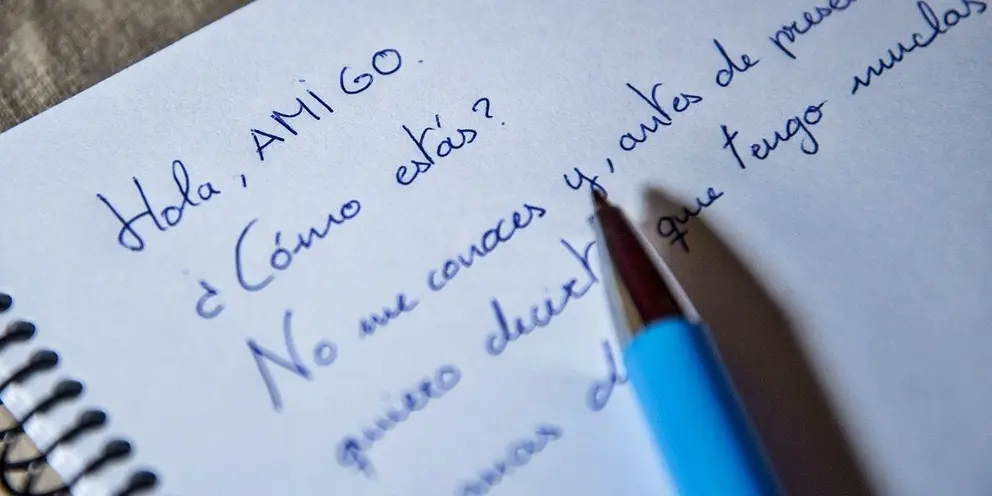 Hola, AMIGO.
¿Cómo estás?
No me conoces y, antes de prese
quiero decirt que tengo muchas